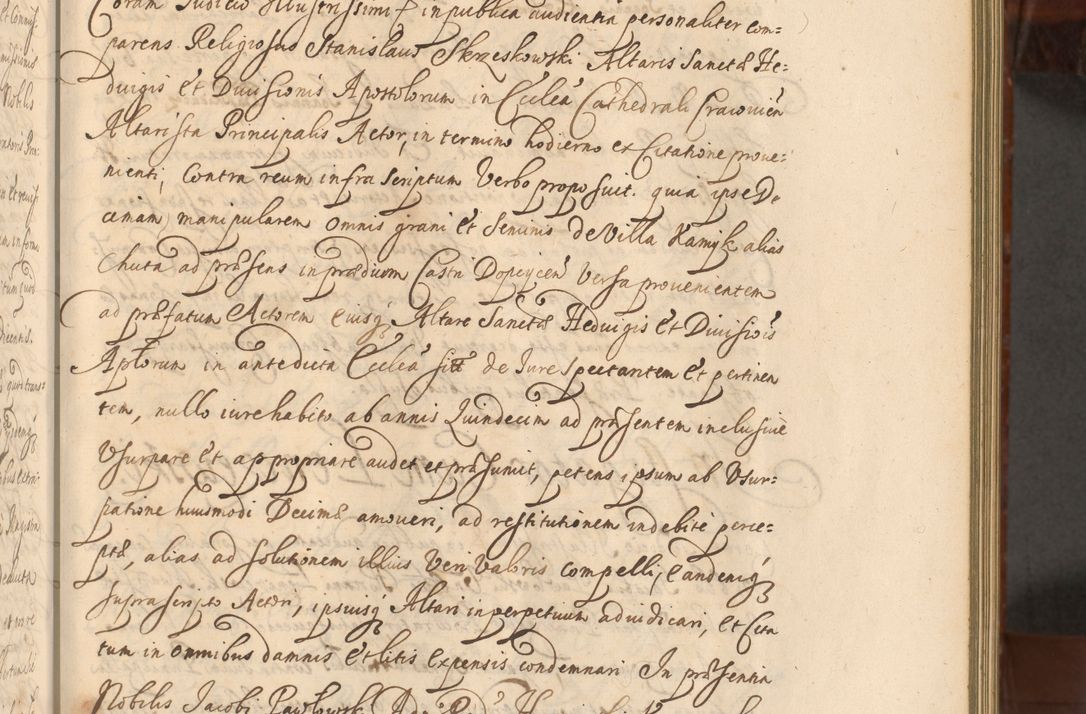 Coram Judicio Illustrissimi in publica audientia personaliter com=
parens Religiosus Stanislaus Skrzeskowski Altaris Sanctæ He=
duigis et Diuisionis Apostolorum in Ecclea Cathedrali Cracouien
Altarista Principalis Actor, in termino hodierno ex Citatione proue=
nienti, Contra reum infra scriptum Verbo proposuit. quia ipse De
cimam manipularem omnis grani et Seminis de Villa Kamyk alias
Chuta ad præsens in prædium Castri Dopcycen Versa prouenientem
ad præfatum Actorem eiusq Altare Sanctæ Heduigis et Diuisiois
Aplorum in antedicta Ecclea sitæ de Jure spectantem et pertinen
tem, nullo iure habito ab annis Quindecim ad præsentem inclusiue
Vsurpare et appropriare audet et præsumit, petens ipsum ab Vsur=
patione huiusmodi Decimæ amoueri, ad restitutionem indebite perce=
ptæ, alias ad solutionem illius Veri Valoris compelli, Eandemq
suprascripto Actori, ipsiusq Altari in perpetuum adiudicari, et Cita
tum in omnibus damnis et litis Expensis condemnari In præsentia
Nobilis Jacobi Pawlowski